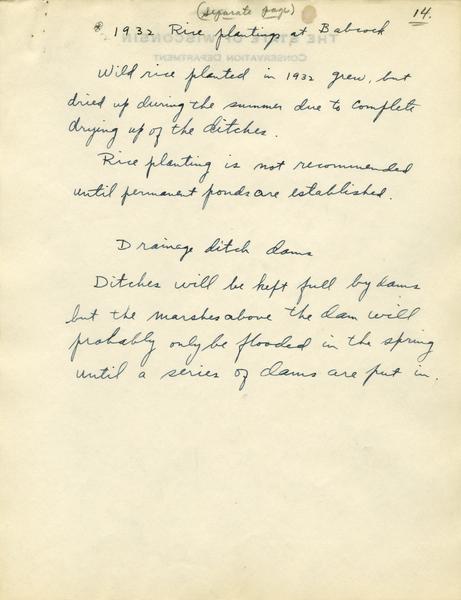 (separate page)
14.
* 1932 Rice planting at Babcock
THE STATE OF WISCONSIN
CONSERVATION DEPARTMENT
Wild rice planted in 1932 grew, but
dried up during the summer due to complete
drying up of the ditches.
Rice planting is not recommended
until permanent ponds are established.
Drainage ditch dams
Ditches will be kept full by dams
but the marshes above the dam will
probably only be flooded in the spring
until a series of dams are put in.